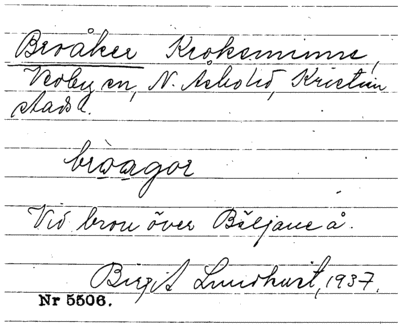 Broåker Kroksminne,
Verby sn, N. Asbo hd, Kristian
stads l.
bròagor
Vid bron över Bäljane å.
Birgit Lundkvist, 1937.
Nr 5506.